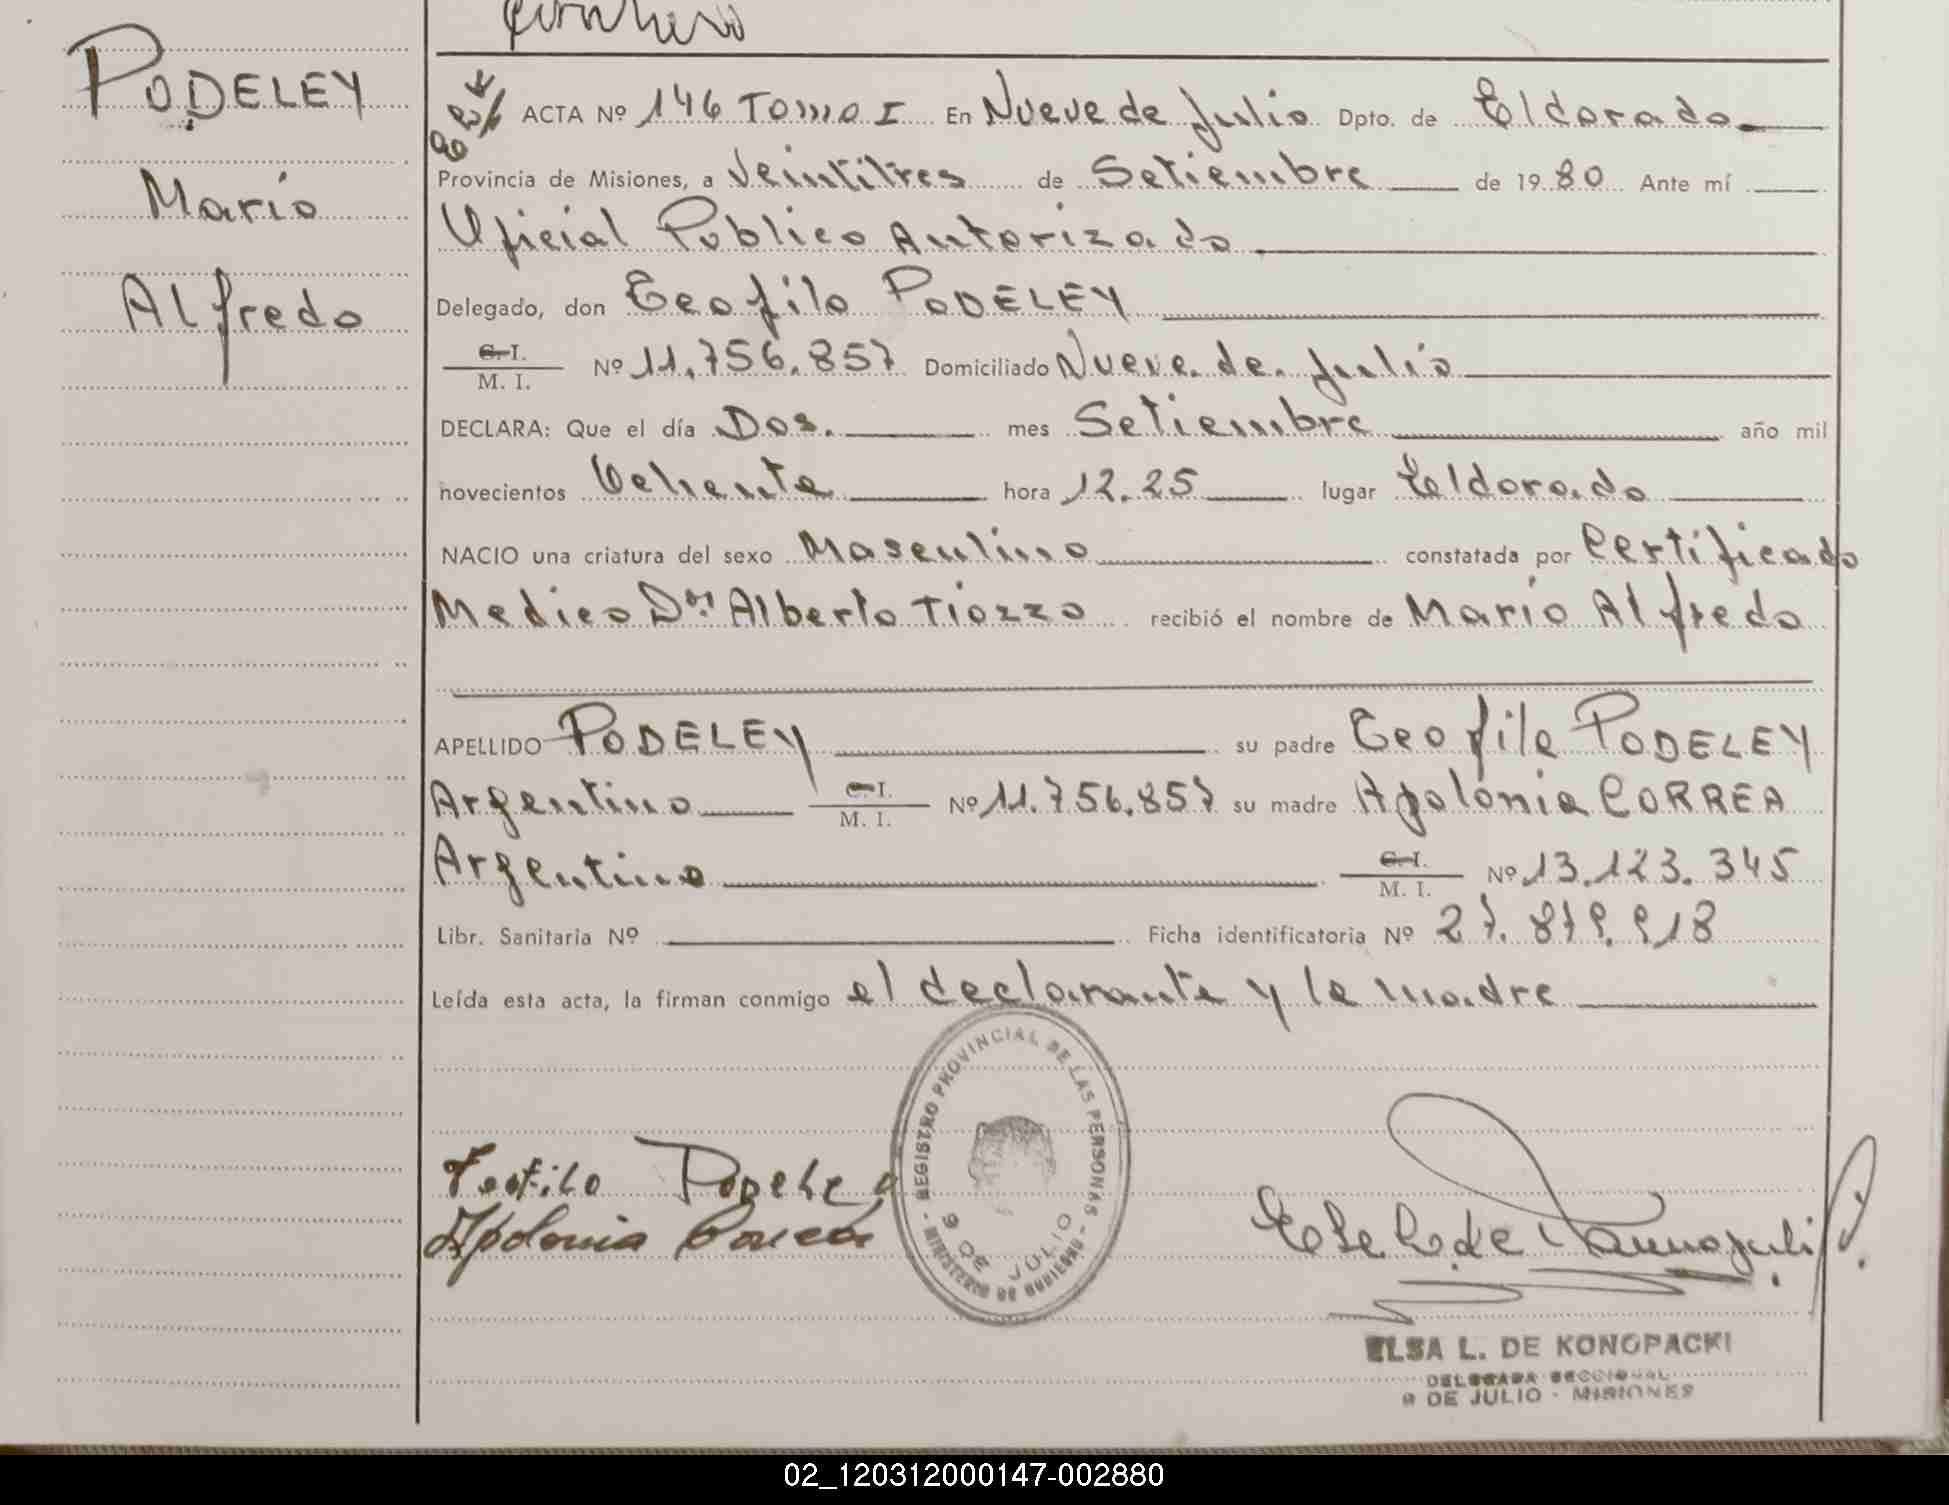 PODELEY
Mario
Alfredo
ACTA Nº 146 Tomo I En Nueve de Julio Dpto. de Eldorado
Provincia de Misiones, a Veintitres de Setiembre de 1980 Ante mí
Oficial Publico Autorizado
Delegado, don Teofilo PODELEY
C. I.
M. I. Nº 11.756.857 Domiciliado Nueve de Julio
DECLARA: Que el día Dos. mes Setiembre año mil
novecientos Ochenta hora 12.25 lugar Eldorado
NACIO una criatura del sexo Masculino constatada por Certificado
Medico Dr. Alberto Tiozzo recibió el nombre de Mario Alfredo
APELLIDO PODELEY su padre Teofilo PODELEY
Argentino C. I.
M. I. Nº 11.756.857 su madre Apolonia CORREA
Argentina C. I.
M. I. Nº 13.123.345
Libr. Sanitaria Nº Ficha identificatoria Nº 27.879.918
Leída esta acta, la firman conmigo el declarante y la madre
REGISTRO PROVINCIAL DE LAS PERSONAS
- MINISTERIO DE GOBIERNO -
9 DE JULIO
Teofilo Podeley
Apolonia Correa
ELSA L. DE KONOPACKI
DELEGADA SECCIONAL
9 DE JULIO - MISIONES
02_120312000147-002880